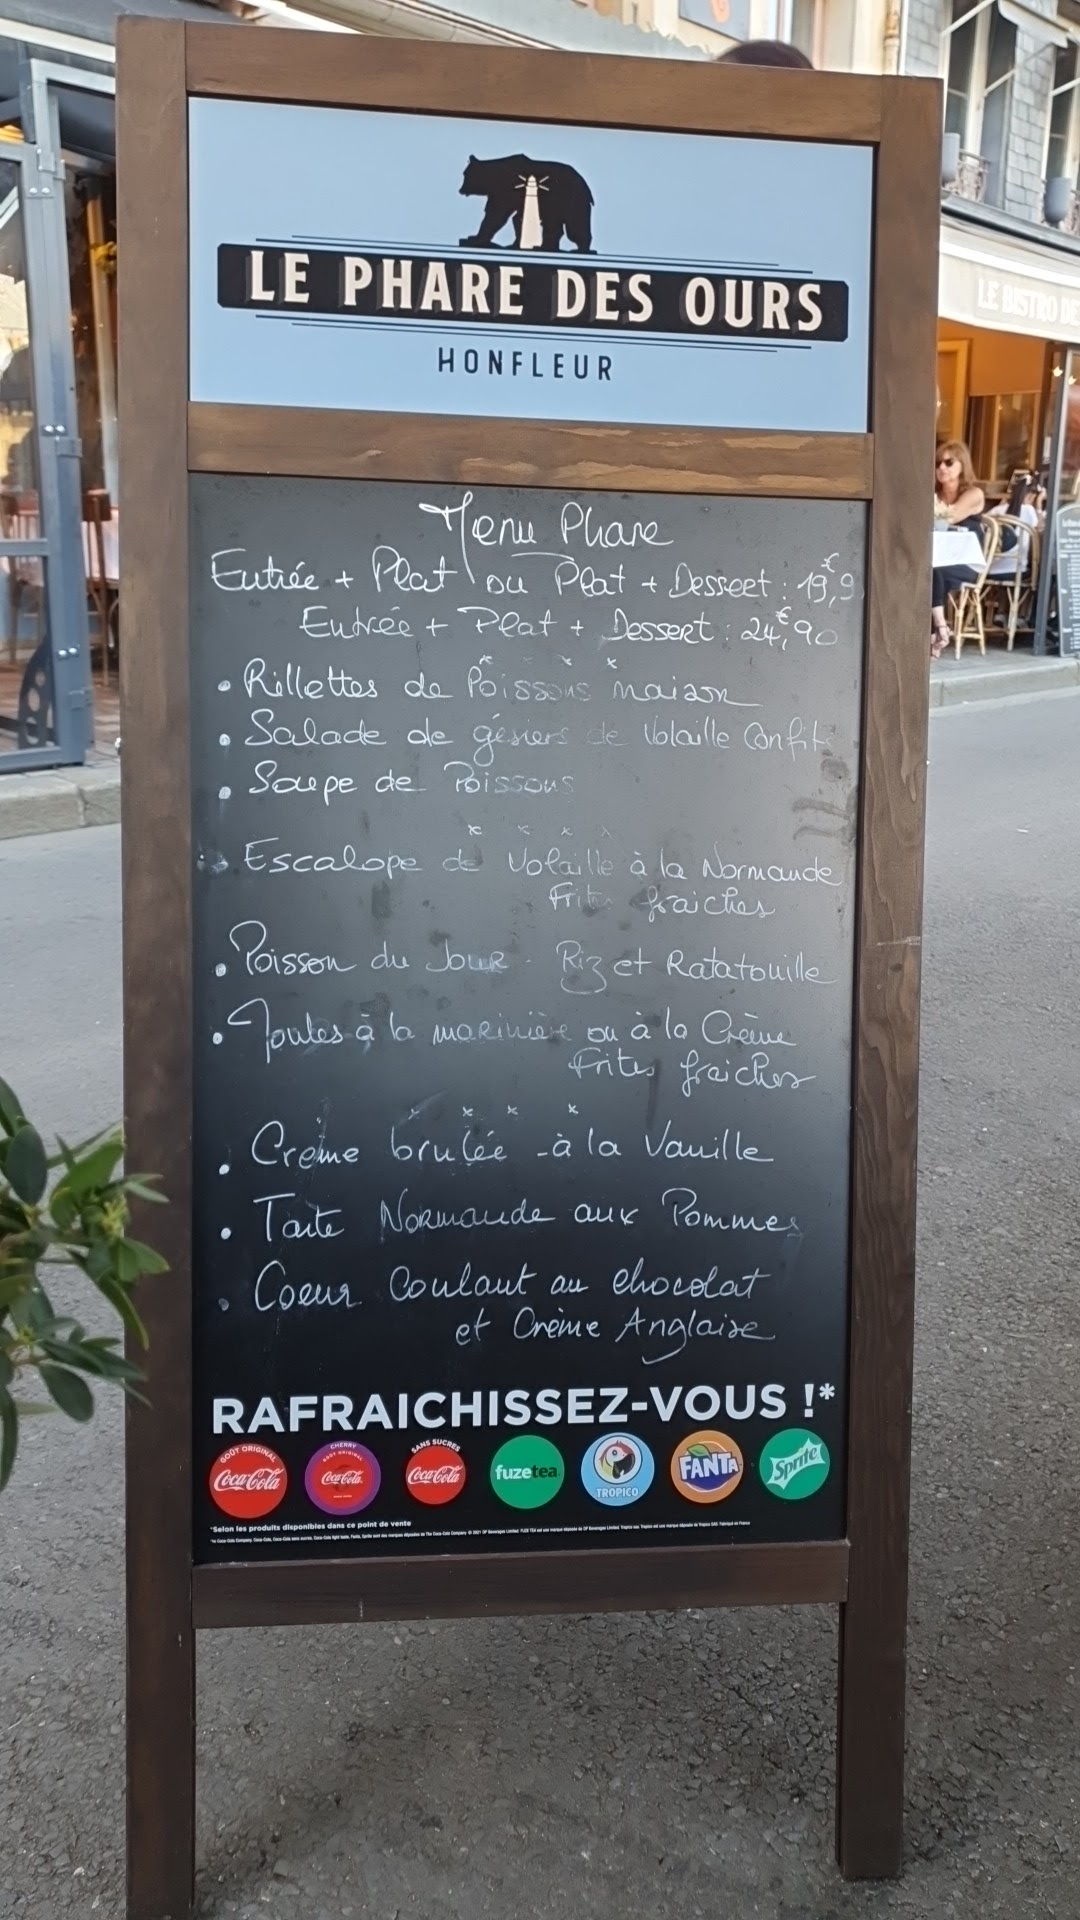 LE PHARE DES OURS
HONFLEUR
LE BISTRO DE
Menu Phare
Entrée + Plat ou Plat + Dessert : 19,9
Entrée + Plat + Dessert : 24,€90
x x x x
• Rillettes de Poissons maison
• Salade de gésiers de Volaille Confit
• Soupe de Poissons
x x x x
• Escalope de Volaille à la Normande
Frites fraiches
• Poisson du Jour - Riz et Ratatouille
• Moules à la marinière ou à la Crème
Frites fraiches
x x x x
• Crème brulée - à la Vanille
• Tarte Normande aux Pommes
• Coeur Coulant au chocolat
et Crème Anglaise
RAFRAICHISSEZ-VOUS !*
GOÛT ORIGINAL
Coca-Cola
CHERRY
GOÛT ORIGINAL
Coca-Cola
SANS SUCRES
Coca-Cola
fuzetea
TROPICO
FANTA
Sprite
*Selon les produits disponibles dans ce point de vente